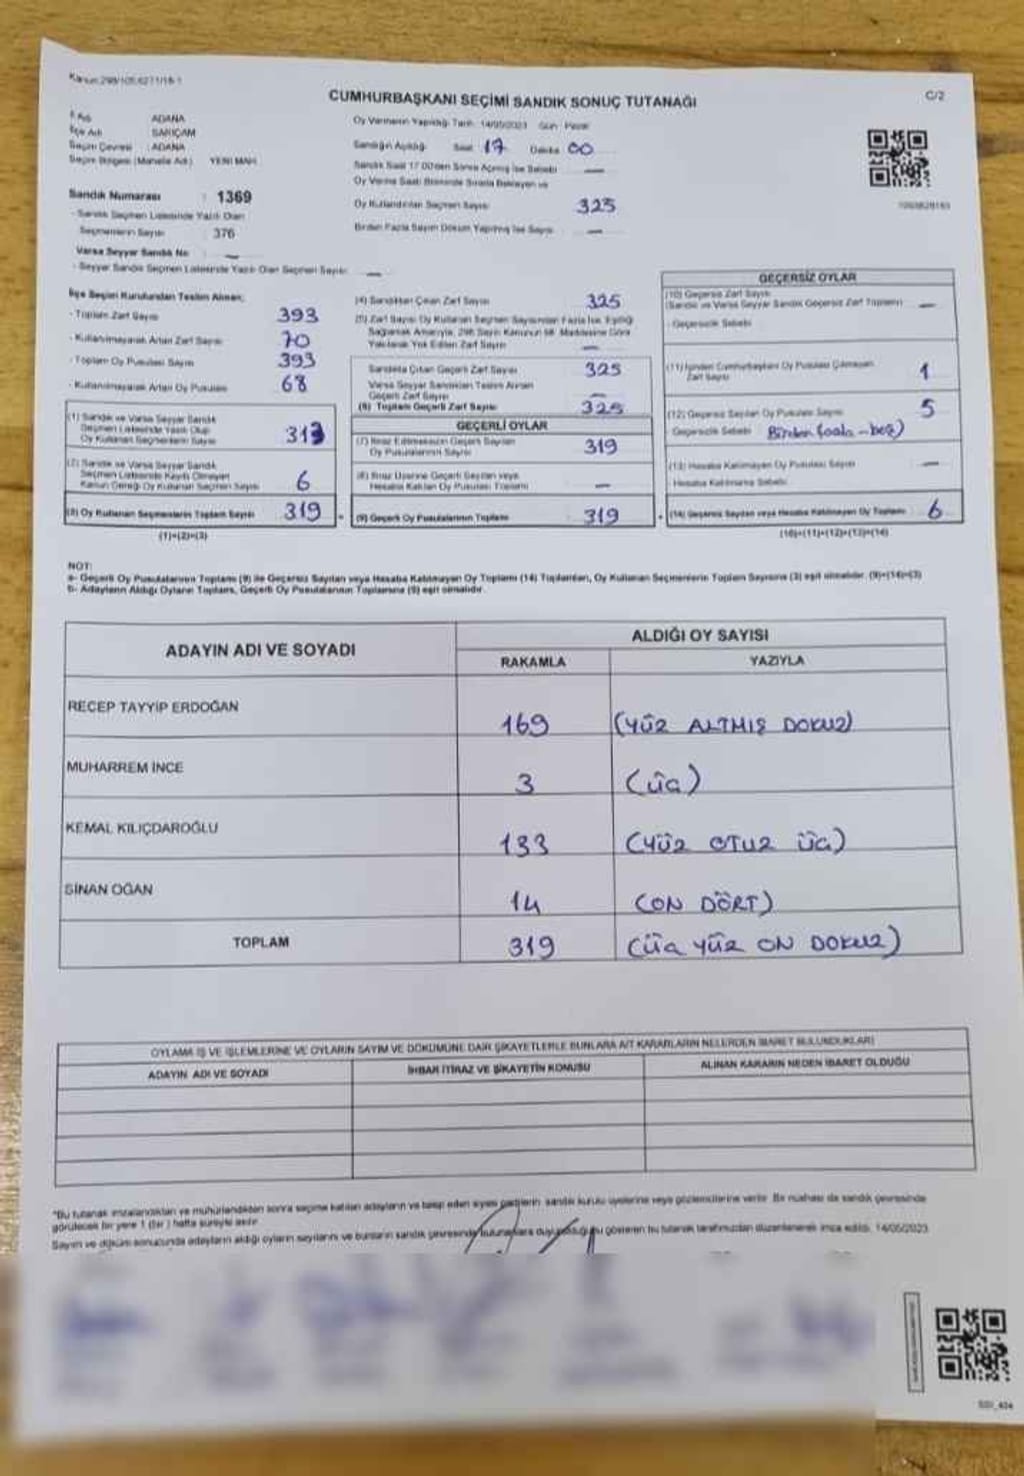 Kanun:298/105,6271/18-1
CUMHURBAŞKANI SEÇİMİ SANDIK SONUÇ TUTANAĞI
C/2
İl Adı ADANA
İlçe Adı SARIÇAM
Seçim Çevresi : ADANA
Seçim Bölgesi (Mahalle Adı) YENİ MAH.
Sandık Numarası : 1369
- Sandık Seçmen Listesinde Yazılı Olan
Seçmenlerin Sayısı : 376
Varsa Seyyar Sandık No : —
- Seyyar Sandık Seçmen Listesinde Yazılı Olan Seçmen Sayısı: —
Oy Vermenin Yapıldığı Tarih: 14/05/2023 Gün: Pazar
Sandığın Açıldığı Saat 17 Dakika 00
Sandık Saat 17.00'den Sonra Açılmış İse Sebebi —
Oy Verme Saati Bitiminde Sırada Bekleyen ve
Oy Kullandırılan Seçmen Sayısı 325
Birden Fazla Sayım Döküm Yapılmış İse Sayısı —
İlçe Seçim Kurulundan Teslim Alınan;
- Toplam Zarf Sayısı 393
- Kullanılmayarak Artan Zarf Sayısı 70
- Toplam Oy Pusulası Sayısı 393
- Kullanılmayarak Artan Oy Pusulası 68
(1) Sandık ve Varsa Seyyar Sandık
Seçmen Listesinde Yazılı Olup
Oy Kullanan Seçmenlerin Sayısı 313
(2) Sandık ve Varsa Seyyar Sandık
Seçmen Listesinde Kayıtlı Olmayan
Kanun Gereği Oy Kullanan Seçmen Sayısı 6
(3) Oy Kullanan Seçmenlerin Toplam Sayısı 319
(1)+(2)=(3)
(4) Sandıktan Çıkan Zarf Sayısı 325
(5) Zarf Sayısı Oy Kullanan Seçmen Sayısından Fazla İse, Eşitliği
Sağlamak Amacıyla, 298 Sayılı Kanunun 98. Maddesine Göre
Yakılarak Yok Edilen Zarf Sayısı —
Sandıkta Çıkan Geçerli Zarf Sayısı 325
Varsa Seyyar Sandıktan Teslim Alınan
Geçerli Zarf Sayısı —
(6) Toplam Geçerli Zarf Sayısı 325
GEÇERLİ OYLAR
(7) İtiraz Edilmeksizin Geçerli Sayılan
Oy Pusulalarının Sayısı 319
(8) İtiraz Üzerine Geçerli Sayılan veya
Hesaba Katılan Oy Pusulası Toplamı —
(9) Geçerli Oy Pusulalarının Toplamı 319
GEÇERSİZ OYLAR
(10) Geçersiz Zarf Sayısı
(Sandık ve Varsa Seyyar Sandık Geçersiz Zarf Toplamı) —
- Geçersizlik Sebebi
(11) İçinden Cumhurbaşkanı Oy Pusulası Çıkmayan
Zarf Sayısı 1
(12) Geçersiz Sayılan Oy Pusulası Sayısı 5
Geçersizlik Sebebi Birden fazla - beş)
(13) Hesaba Katılmayan Oy Pusulası Sayısı —
Hesaba Katılmama Sebebi
(14) Geçersiz Sayılan veya Hesaba Katılmayan Oy Toplamı 6
(10)+(11)+(12)+(13)=(14)
NOT:
a- Geçerli Oy Pusulalarının Toplamı (9) ile Geçersiz Sayılan veya Hesaba Katılmayan Oy Toplamı (14) Toplamları, Oy Kullanan Seçmenlerin Toplam Sayısına (3) eşit olmalıdır. (9)+(14)=(3)
b- Adayların Aldığı Oyların Toplamı, Geçerli Oy Pusulalarının Toplamına (9) eşit olmalıdır.
ADAYIN ADI VE SOYADI
ALDIĞI OY SAYISI
RAKAMLA YAZIYLA
RECEP TAYYİP ERDOĞAN 169 (YÜZ ALTMIŞ DOKUZ)
MUHARREM İNCE 3 (ÜÇ)
KEMAL KILIÇDAROĞLU 133 (YÜZ OTUZ ÜÇ)
SİNAN OĞAN 14 (ON DÖRT)
TOPLAM 319 (ÜÇ YÜZ ON DOKUZ)
OYLAMA İŞ VE İŞLEMLERİNE VE OYLARIN SAYIM VE DÖKÜMÜNE DAİR ŞİKAYETLERLE BUNLARA AİT KARARLARIN NELERDEN İBARET BULUNDUKLARI
ADAYIN ADI VE SOYADI İHBAR İTİRAZ VE ŞİKAYETİN KONUSU ALINAN KARARIN NEDEN İBARET OLDUĞU
*Bu tutanak imzalandıktan ve mühürlendikten sonra seçime katılan adayların ve talep eden siyasi partilerin sandık kurulu üyelerine veya gözlemcilerine verilir. Bir nüshası da sandık çevresinde
görülecek bir yere 1 (bir) hafta süreyle asılır.
Sayım ve döküm sonucunda adayların aldığı oyların sayılarını ve bunların sandık çevresinde bulunanlara duyurulduğunu gösteren bu tutanak tarafımızdan düzenlenerek imza edildi. 14/05/2023